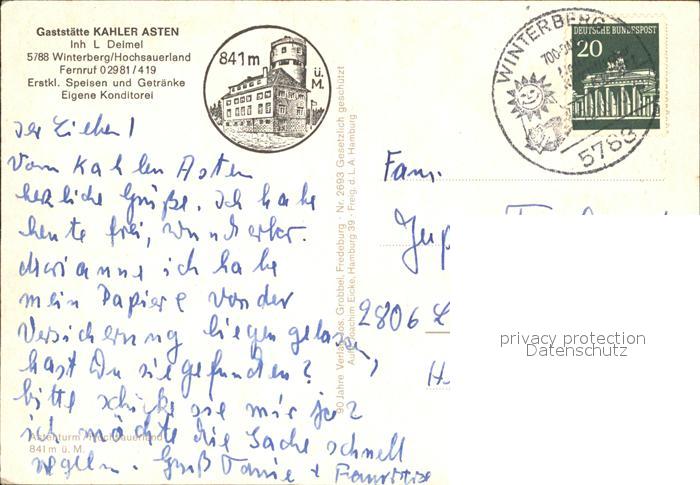 Gaststätte KAHLER ASTEN
Inh L Deimel
5788 Winterberg/Hochsauerland
Fernruf 02981/419
Erstkl. Speisen und Getränke
Eigene Konditorei
841 m ü. M.
WINTERBERG
5788
DEUTSCHE BUNDESPOST
20
Vom Kahlen Asten
herzliche Grüße. Ich habe
heute frei, wunderbar.
Marianne ich habe
mein Papiere von der
Versicherung liegen gelassen,
hast Du sie gefunden?
bitte schicke sie mir
ich möchte die Sache schnell
regeln. Gruß
Fam.
2806
90 Jahre Verlag Jos. Grobbel, Fredeburg · Nr. 2693 Gesetzlich geschützt
Eicke, Hamburg 39 · Freig. d. L. A. Hamburg
841 m ü. M.
privacy protection
Datenschutz